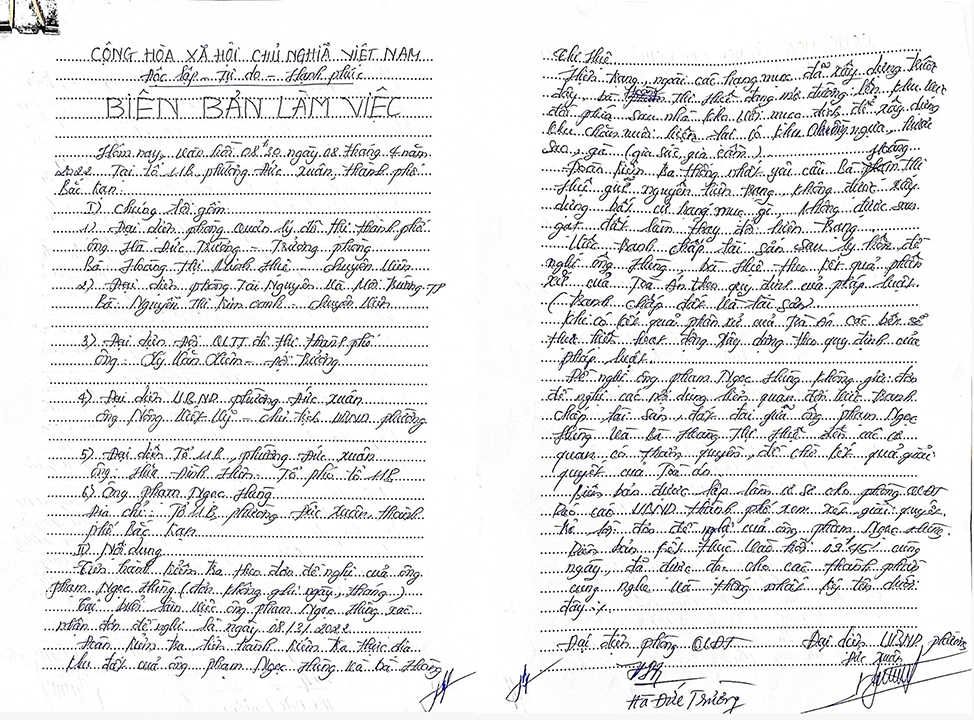 CỘNG HÒA XÃ HỘI CHỦ NGHĨA VIỆT NAM
Độc lập - Tự do - Hạnh phúc
BIÊN BẢN LÀM VIỆC
Hôm nay, vào hồi 08h30 ngày 08 tháng 4 năm
2022 Tại tổ 11B phường Đức Xuân, thành phố
Bắc Kạn
I) Chúng tôi gồm:
1) Đại diện phòng Quản lý đô thị thành phố
ông Hà Đức Trường - Trưởng phòng
Bà Hoàng Thị Minh Huê - chuyên viên
2) Đại diện phòng Tài Nguyên và Môi Trường TP
Bà Nguyễn Thị Kim Oanh - chuyên viên
3) Đại diện Đội QLTT đô thị thành phố
Ông: Lý Văn - Đội Trưởng
4) Đại diện UBND phường Đức Xuân
ông Nông Việt Vỹ - Chủ tịch UBND phường
5) Đại diện Tổ 11B, phường Đức Xuân
ông: Hứa Đình Hiến - Tổ phó tổ 11B
6) Ông phạm Ngọc Hùng
Địa chỉ: Tổ 11B, phường Đức Xuân, thành
phố Bắc Kạn
II) Nội dung
Tiến hành kiểm tra theo đơn đề nghị của ông
phạm Ngọc Hùng (đơn không ghi ngày, tháng)
Tại buổi làm việc ông phạm Ngọc Hùng xác
nhận đơn đề nghị là ngày 08/3/2022
Đoàn kiểm tra tiến hành kiểm tra thực địa
khu đất của ông phạm Ngọc Hùng và bà Hoàng
Thị Huê
Hiện trạng, ngoài các hạng mục đã xây dựng trước
đây, bà Thị Huê đang mở đường lên khu vực
đồi phía sau nhà kho với mục đích để xây dựng
khu chăn nuôi hiện tại có khu chuồng ngựa, hươu
sao, gà (gia súc, gia cầm)
Hoàng
Đoàn kiểm tra thống nhất yêu cầu bà phạm Thị
Huê giữ nguyên hiện trạng không được xây
dựng bất cứ hạng mục gì, không được san
gạt đất làm thay đổi hiện trạng
Việc tranh chấp tài sản sau ly hôn đề
nghị ông Hùng, bà Huê theo kết quả phán
xử của Tòa Án theo quy định của pháp luật
(Tranh chấp đất và tài sản)
Khi có kết quả phán xử của Tòa Án các bên sẽ
thực hiện hoạt động xây dựng theo quy định của
pháp luật.
Đề nghị ông phạm Ngọc Hùng không gửi đơn
đề nghị các nội dung liên quan đến việc tranh
chấp tài sản, đất đai giữa ông phạm Ngọc
Hùng và Bà Hoàng Thị Huê đến các cơ
quan có thẩm quyền, để chờ kết quả giải
quyết của Tòa án
Biên bản được lập làm cơ sở cho phòng QLĐT
báo cáo UBND thành phố xem xét giải quyết,
trả lời đơn đề nghị của ông phạm Ngọc Hùng.
Biên bản kết thúc vào hồi 09h45' cùng
ngày, đã được đọc cho các thành phần
cùng nghe và thống nhất ký tên dưới
đây ./.
Đại diện phòng QLĐT
Đại diện UBND phường
Đức Xuân
Hà Đức Trường